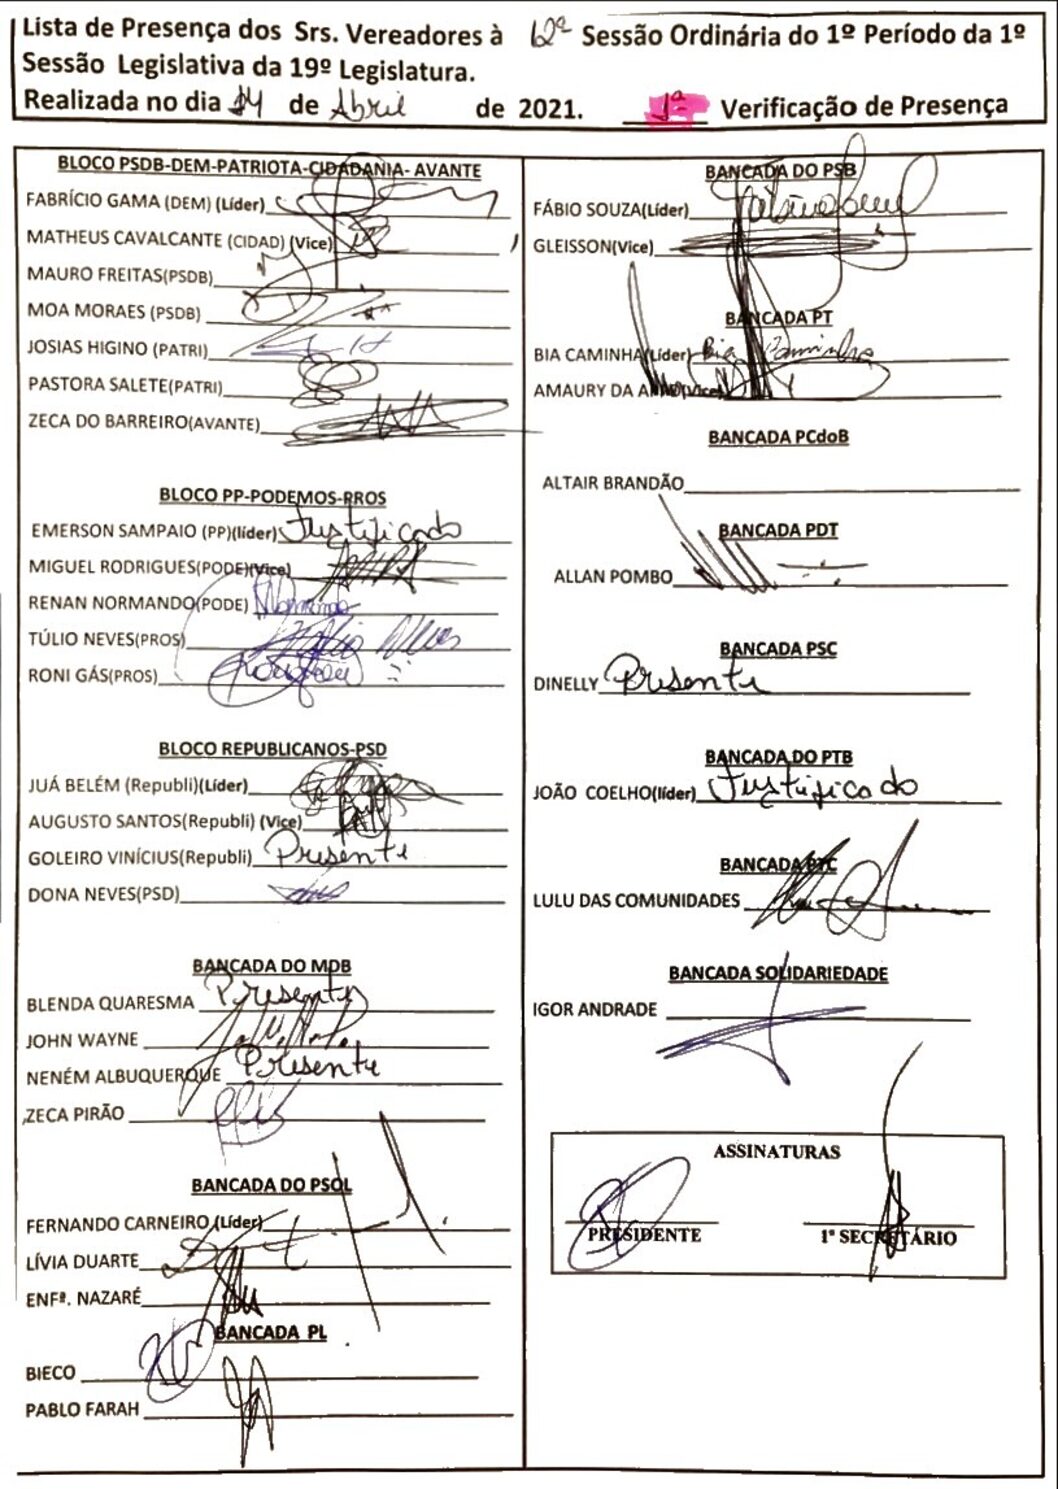 Lista de Presença dos Srs. Vereadores à 62ª Sessão Ordinária do 1º Período da 1º
Sessão Legislativa da 19º Legislatura.
Realizada no dia 14 de Abril de 2021. 1ª Verificação de Presença
BLOCO PSDB-DEM-PATRIOTA-CIDADANIA- AVANTE
FABRÍCIO GAMA (DEM) (Líder)
MATHEUS CAVALCANTE (CIDAD) (Vice)
MAURO FREITAS(PSDB)
MOA MORAES (PSDB)
JOSIAS HIGINO (PATRI)
PASTORA SALETE(PATRI)
ZECA DO BARREIRO(AVANTE)
BLOCO PP-PODEMOS-PROS
EMERSON SAMPAIO (PP)(líder) Justificado
MIGUEL RODRIGUES(PODE)(Vice)
RENAN NORMANDO(PODE) Normando
TÚLIO NEVES(PROS) Túlio Neves
RONI GÁS(PROS)
BLOCO REPUBLICANOS-PSD
JUÁ BELÉM (Republi)(Líder)
AUGUSTO SANTOS(Republi) (Vice)
GOLEIRO VINÍCIUS(Republi) Presente
DONA NEVES(PSD)
BANCADA DO MDB
BLENDA QUARESMA Presente
JOHN WAYNE
NENÉM ALBUQUERQUE Presente
ZECA PIRÃO
BANCADA DO PSOL
FERNANDO CARNEIRO (Líder)
LÍVIA DUARTE
ENFª. NAZARÉ
BANCADA PL
BIECO
PABLO FARAH
BANCADA DO PSB
FÁBIO SOUZA(Líder)
GLEISSON(Vice)
BANCADA PT
BIA CAMINHA(Líder) Bia Caminha
AMAURY DA (Vice)
BANCADA PCdoB
ALTAIR BRANDÃO
BANCADA PDT
ALLAN POMBO
BANCADA PSC
DINELLY Presente
BANCADA DO PTB
JOÃO COELHO(líder) Justificado
BANCADA PTC
LULU DAS COMUNIDADES
BANCADA SOLIDARIEDADE
IGOR ANDRADE
ASSINATURAS
PRESIDENTE 1º SECRETÁRIO